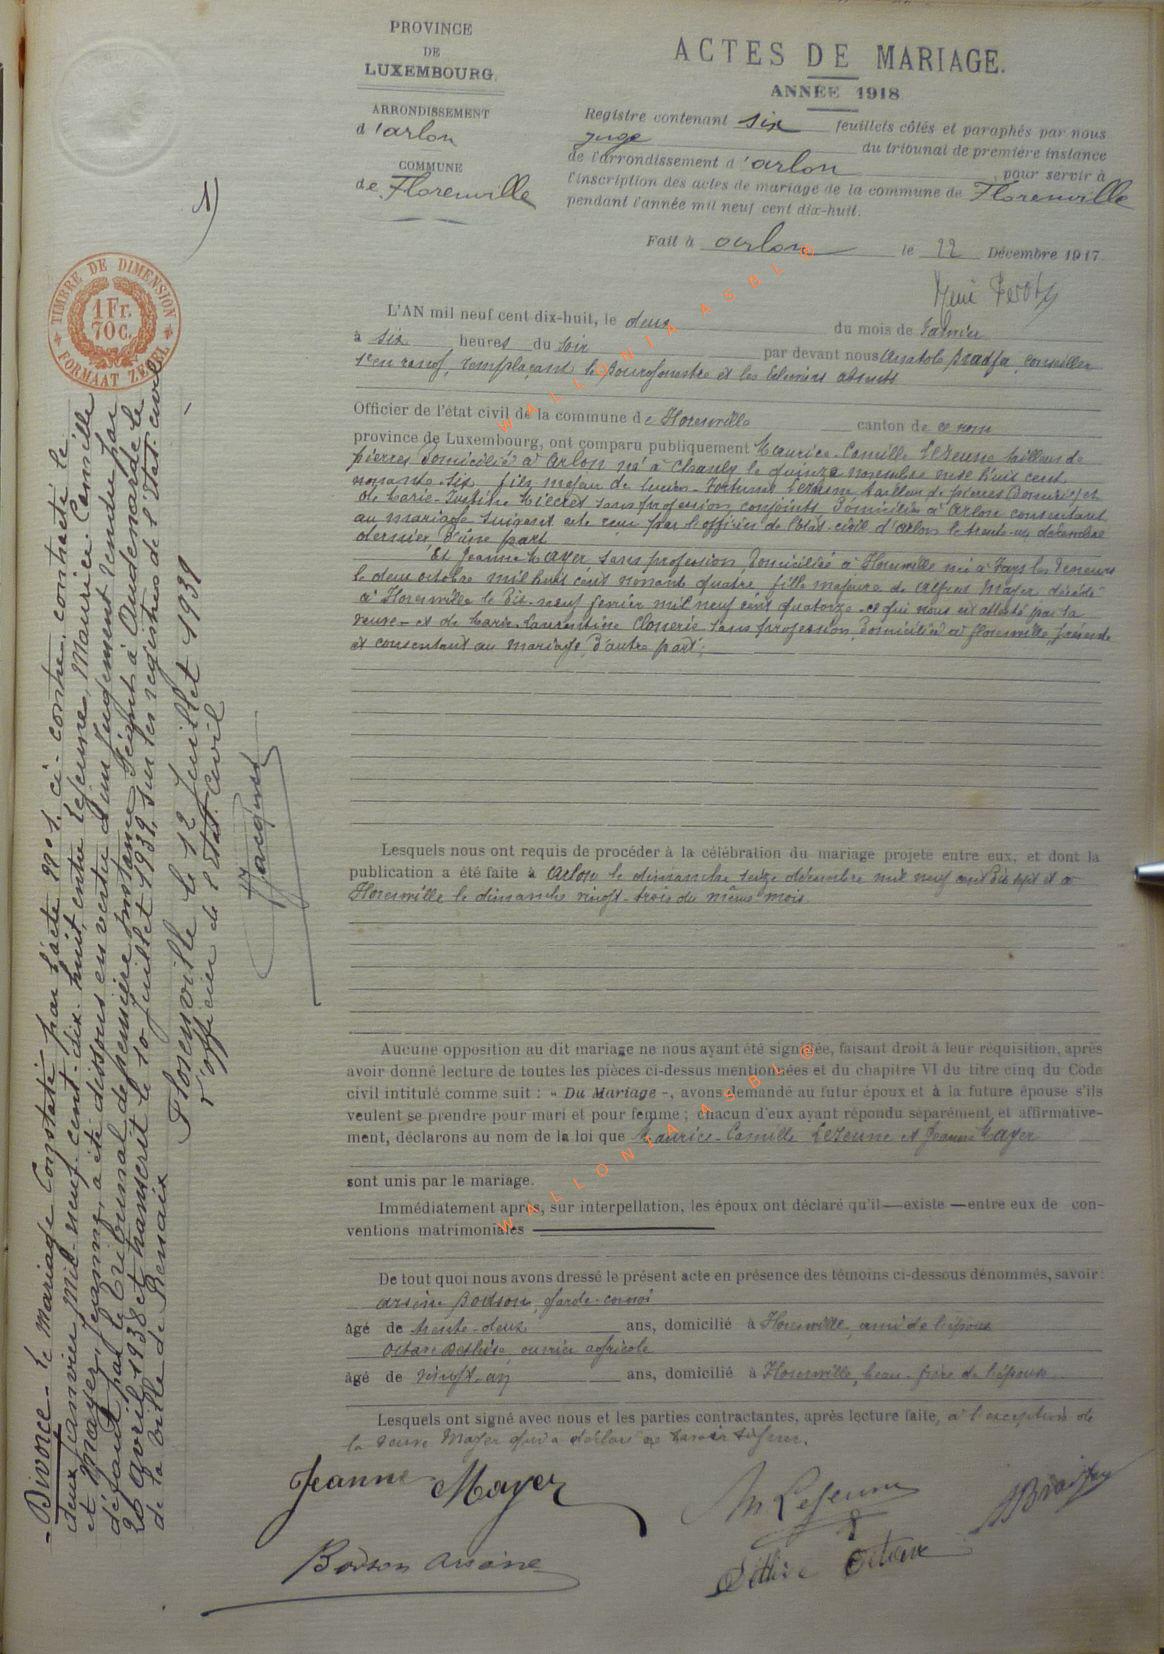 PROVINCE
DE
LUXEMBOURG.
ARRONDISSEMENT
d'arlon
COMMUNE
de Florenville
ACTES DE MARIAGE.
ANNÉE 1918
Registre contenant six feuillets côtés et paraphés par nous
juge du tribunal de première instance
de l'arrondissement d'arlon, pour servir à
l'inscription des actes de mariage de la commune de Florenville
pendant l'année mil neuf cent dix-huit.
Fait à arlon le 22 Décembre 1917.
1)
TIMBRE DE DIMENSION
1 Fr.
70 c.
FORMAAT ZEGEL
L'AN mil neuf cent dix-huit, le deux du mois de Janvier
à six heures du soir par devant nous Anatole conseiller
1er en rang, remplaçant le Bourgmestre et les Echevins absents
Officier de l'état civil de la commune de Florenville canton de ce nom
province de Luxembourg, ont comparu publiquement Maurice-Camille Lejeune tailleur de
pierres domicilié à Arlon né à Chanly le quinze novembre mil huit cent
nonante-six, fils majeur de Lucien-Fortuné Lejeune tailleur de pierres et
de Marie-Justine sans profession conjoints domiciliés à Arlon consentant
au mariage suivant acte reçu par l'officier de l'état-civil d'Arlon le trente-un décembre
dernier d'une part
Et Jeanne Mayer sans profession domiciliée à Florenville née à Fays les Veneurs
le deux octobre mil huit cent nonante quatre, fille majeure de Alfred Mayer décédé
à Florenville le dix-neuf février mil neuf cent quatorze ce qui nous est attesté par sa
veuve et de Marie-Laurentine sans profession, domiciliée à Florenville, présente
et consentant au mariage, d'autre part;
Lesquels nous ont requis de procéder à la célébration du mariage projeté entre eux, et dont la
publication a été faite à Arlon le dimanche seize décembre mil neuf cent dix sept et à
Florenville le dimanche vingt-trois du même mois
Aucune opposition au dit mariage ne nous ayant été signalée, faisant droit à leur réquisition, après
avoir donné lecture de toutes les pièces ci-dessus mentionnées et du chapitre VI du titre cinq du Code
civil intitulé comme suit : « Du Mariage », avons demandé au futur époux et à la future épouse s'ils
veulent se prendre pour mari et pour femme ; chacun d'eux ayant répondu séparément et affirmative-
ment, déclarons au nom de la loi que Maurice-Camille Lejeune et Jeanne Mayer
sont unis par le mariage.
Immédiatement après, sur interpellation, les époux ont déclaré qu'il — existe — entre eux de con-
ventions matrimoniales
De tout quoi nous avons dressé le présent acte en présence des témoins ci-dessous dénommés, savoir :
Arsène Bodson, garde-convoi
âgé de trente-deux ans, domicilié à Florenville, ami de l'époux
Octave Dethise, ouvrier agricole
âgé de vingt-un ans, domicilié à Florenville, beau-frère de l'épouse
Lesquels ont signé avec nous et les parties contractantes, après lecture faite, à l'exception de
la veuve Mayer qui a déclaré ne savoir signer.
Jeanne Mayer
M Lejeune
Bodson Arsène
Dethise Octave
- Divorce - le mariage constaté par l'acte no 1. ci-contre contracté le
deux janvier mil-neuf-cent-dix-huit, entre Lejeune, Maurice-Camille
et Mayer, Jeanne, a été dissous en vertu d'un jugement rendu par
défaut par le tribunal de première instance séant à Audenarde le
20 avril 1938 et transcrit le 10 juillet 1939, sur les registres de l'état-civil
de la ville de Renaix
Florenville le 12 juillet 1939
L'officier de l'état civil
WALLONIA ASBL ©
WALLONIA ASBL ©